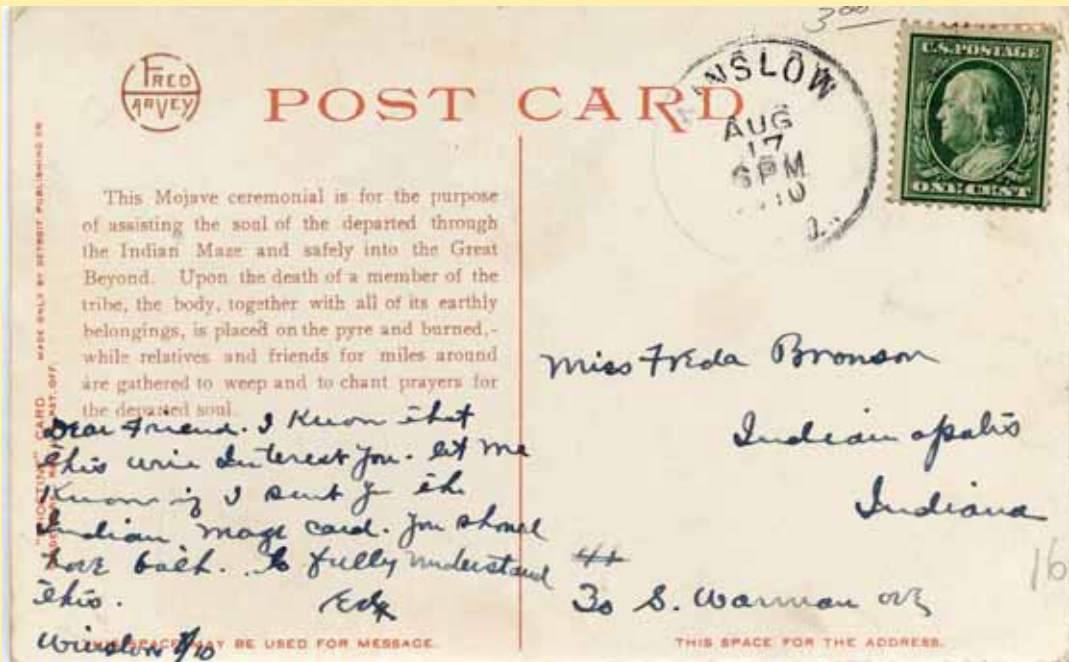 FRED
HARVEY
POST CARD
3 00
WINSLOW
AUG
17
6 PM
U.S. POSTAGE
ONE CENT
This Mojave ceremonial is for the purpose
of assisting the soul of the departed through
the Indian Maze and safely into the Great
Beyond. Upon the death of a member of the
tribe, the body, together with all of its earthly
belongings, is placed on the pyre and burned,-
while relatives and friends for miles around
are gathered to weep and to chant prayers for
the departed soul.
"PHOSTINT" CARD MADE ONLY BY DETROIT PUBLISHING CO
PAT. OFF.
Dear Friend. I Know that
this will Interest you. let me
Know if I sent you the
Indian maze card. you should
have both. to fully understand
this.
Winslow
THIS SPACE MAY BE USED FOR MESSAGE.
Miss Freda Bronson
Indianapolis
Indiana
30 S. Warman ave
16
THIS SPACE FOR THE ADDRESS.